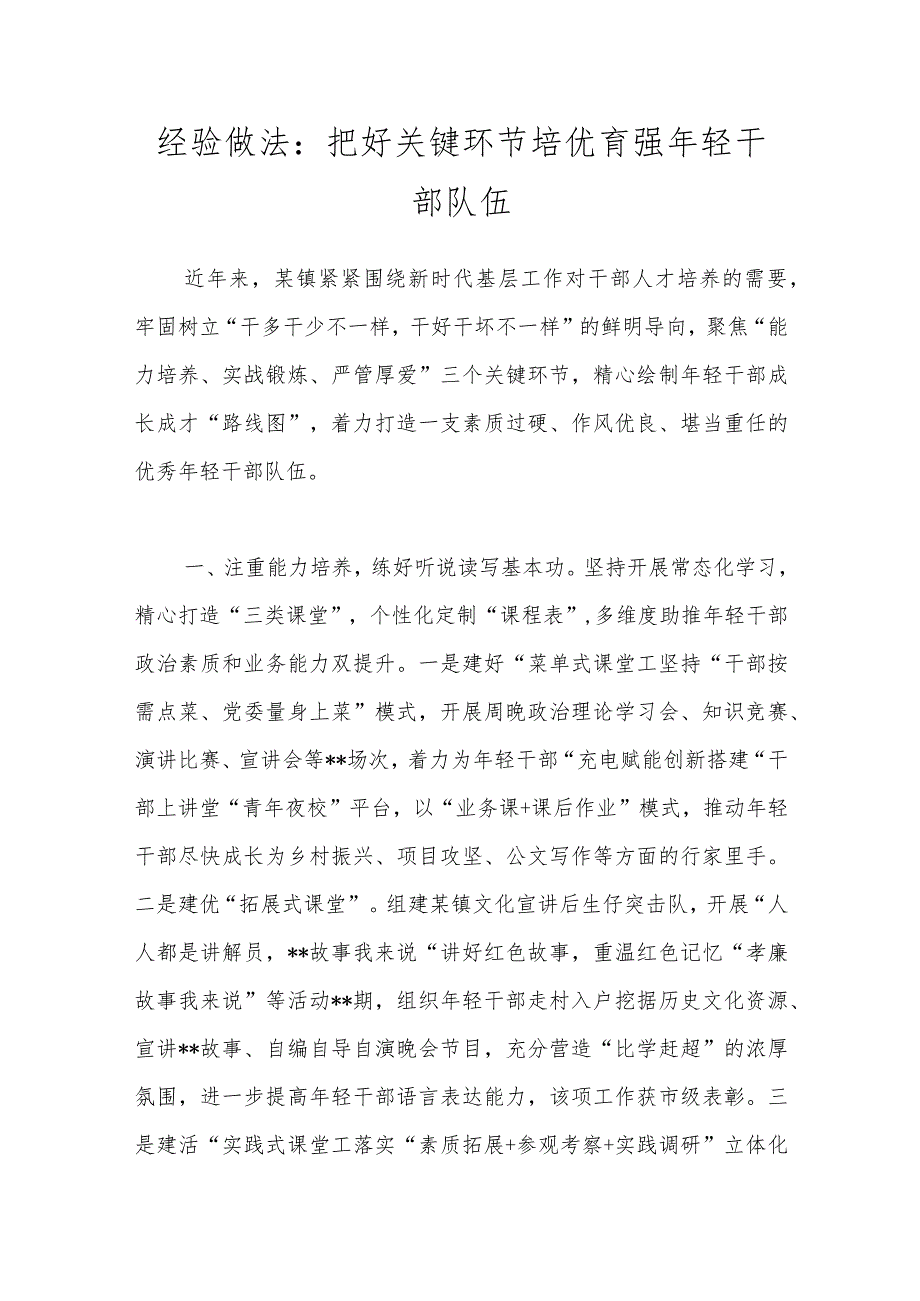 经验做法：把好关键环节培优育强年轻干
部队伍
近年来，某镇紧紧围绕新时代基层工作对干部人才培养的需要，
牢固树立“干多干少不一样，干好干坏不一样”的鲜明导向，聚焦“能
力培养、实战锻炼、严管厚爱”三个关键环节，精心绘制年轻干部成
长成才“路线图”，着力打造一支素质过硬、作风优良、堪当重任的
优秀年轻干部队伍。
一、注重能力培养，练好听说读写基本功。坚持开展常态化学习，
精心打造“三类课堂”，个性化定制“课程表”,多维度助推年轻干部
政治素质和业务能力双提升。一是建好“菜单式课堂工坚持“干部按
需点菜、党委量身上菜”模式，开展周晚政治理论学习会、知识竞赛、
演讲比赛、宣讲会等**场次，着力为年轻干部“充电赋能创新搭建“干
部上讲堂“青年夜校”平台，以“业务课+课后作业”模式，推动年轻
干部尽快成长为乡村振兴、项目攻坚、公文写作等方面的行家里手。
二是建优“拓展式课堂”。组建某镇文化宣讲后生仔突击队，开展“人
人都是讲解员，**故事我来说“讲好红色故事，重温红色记忆“孝廉
故事我来说”等活动**期，组织年轻干部走村入户挖据历史文化资源、
宣讲**故事、自编自导自演晚会节目，充分营造“比学赶超”的浓厚
氛围，进一步提高年轻干部语言表达能力，该项工作获市级表彰。三
是建活“实践式课堂工落实“素质拓展+参观考察+实践调研”立体化